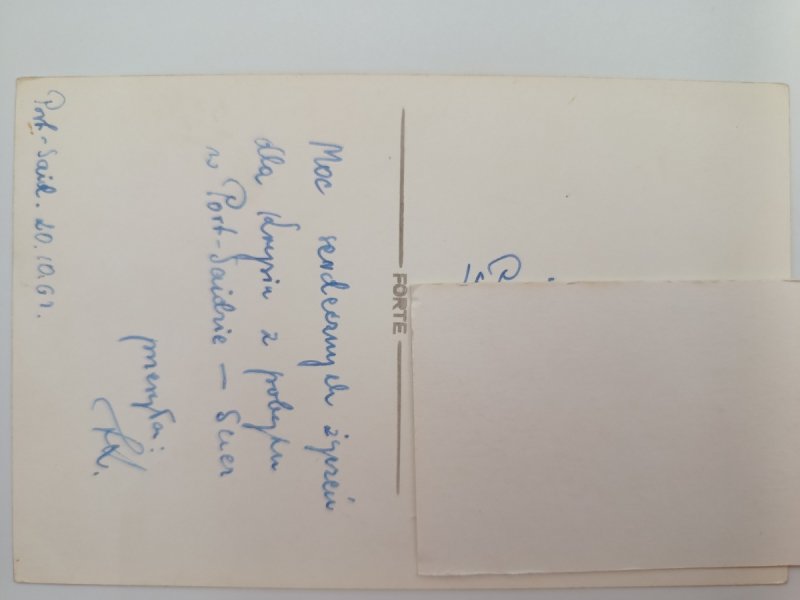 Port-Said. 20.10.67.
Moc serdecznych życzeń
dla Krysiu z pobytu
w Port-Saidzie — Suez
przesyła:
FORTE